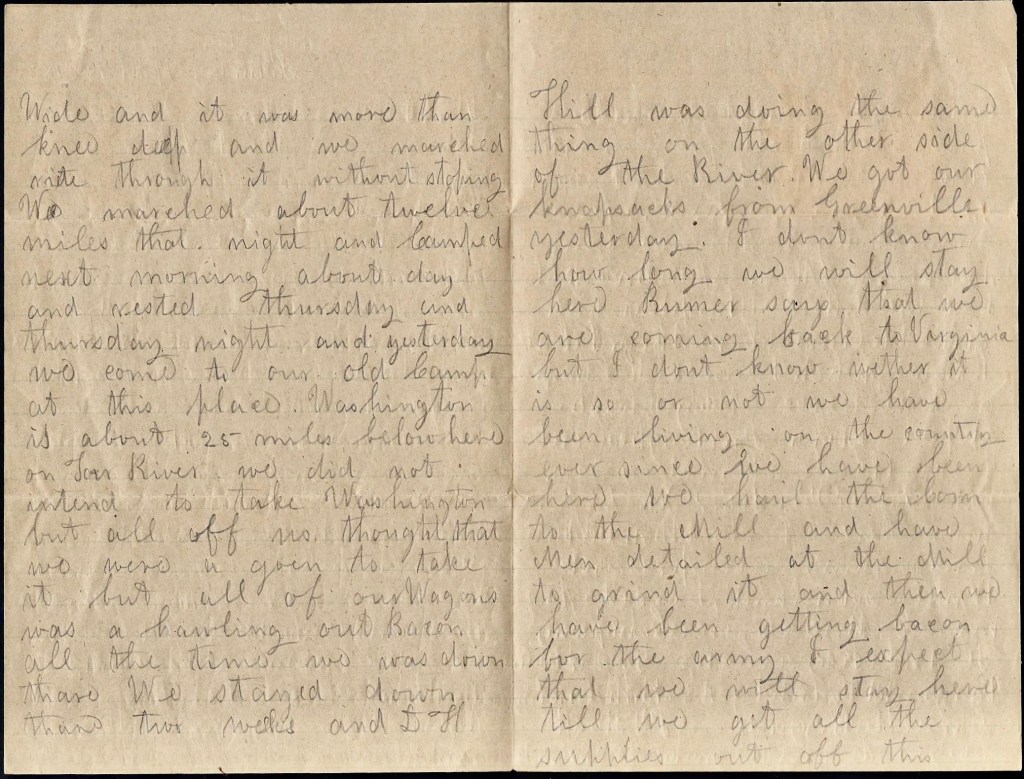 Wide and it was more than
knee deep and we marched
rite through it without stoping
We marched about twelve
miles that night and Camped
next morning about day
and rested thursday and
thursday night and yesterday
we come to our old Camp
at this place. Washington
is about 25 miles below here
on Tar River we did not
intend to take Washington
but all off us thought that
we were a goen to take
it but all of our Wagons
was a hawling out Bacon
all the time we was down
thare We stayed down
thare two weeks and D H
Hill was doing the same
thing on the other side
of the River. We got our
knapsacks from Greenville
yesterday. I dont know
how long we will stay
here Rumer says that we
are coming back to Virginia
but I dont know wether it
is so or not we have
been living on the country
ever since we have been
here We haul the corn
to the Mill and have
Men detailed at the Mill
to grind it and then we
have been getting bacon
for the army I expect
that we will stay here
till we get all the
supplies out off this